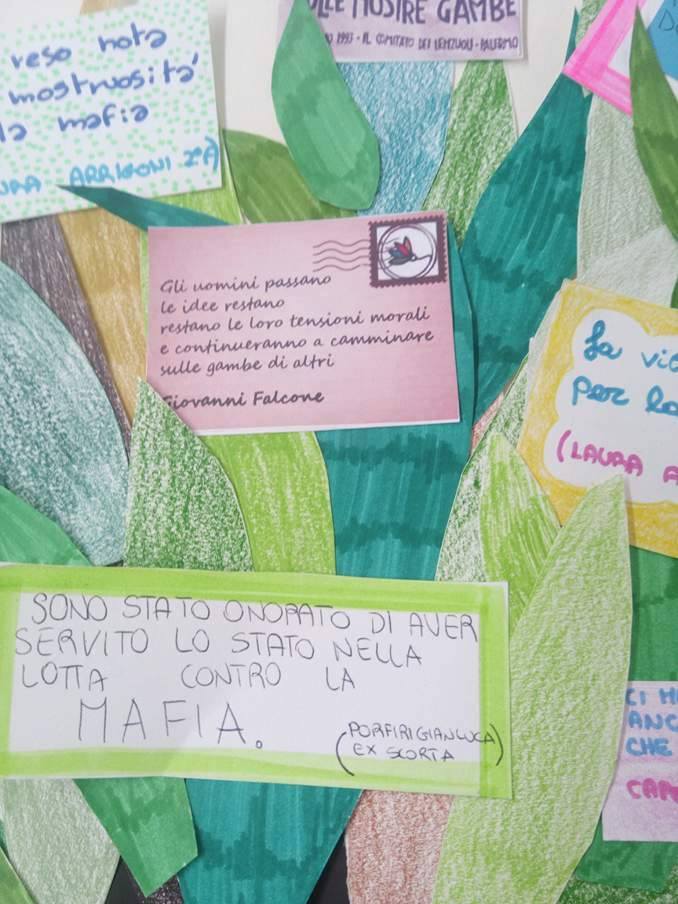 reso nota
mostruosità
la mafia
ARRIGONI 2ªA)
NOSTRE GAMBE
1993 - IL COMITATO DEI LENZUOLI - PALERMO
Gli uomini passano
le idee restano
restano le loro tensioni morali
e continueranno a camminare
sulle gambe di altri
Giovanni Falcone
La
per
(LAURA
SONO STATO ONORATO DI AVER
SERVITO LO STATO NELLA
LOTTA CONTRO LA
MAFIA.
(PORFIRI GIANLUCA)
EX SCORTA
CI
CHE